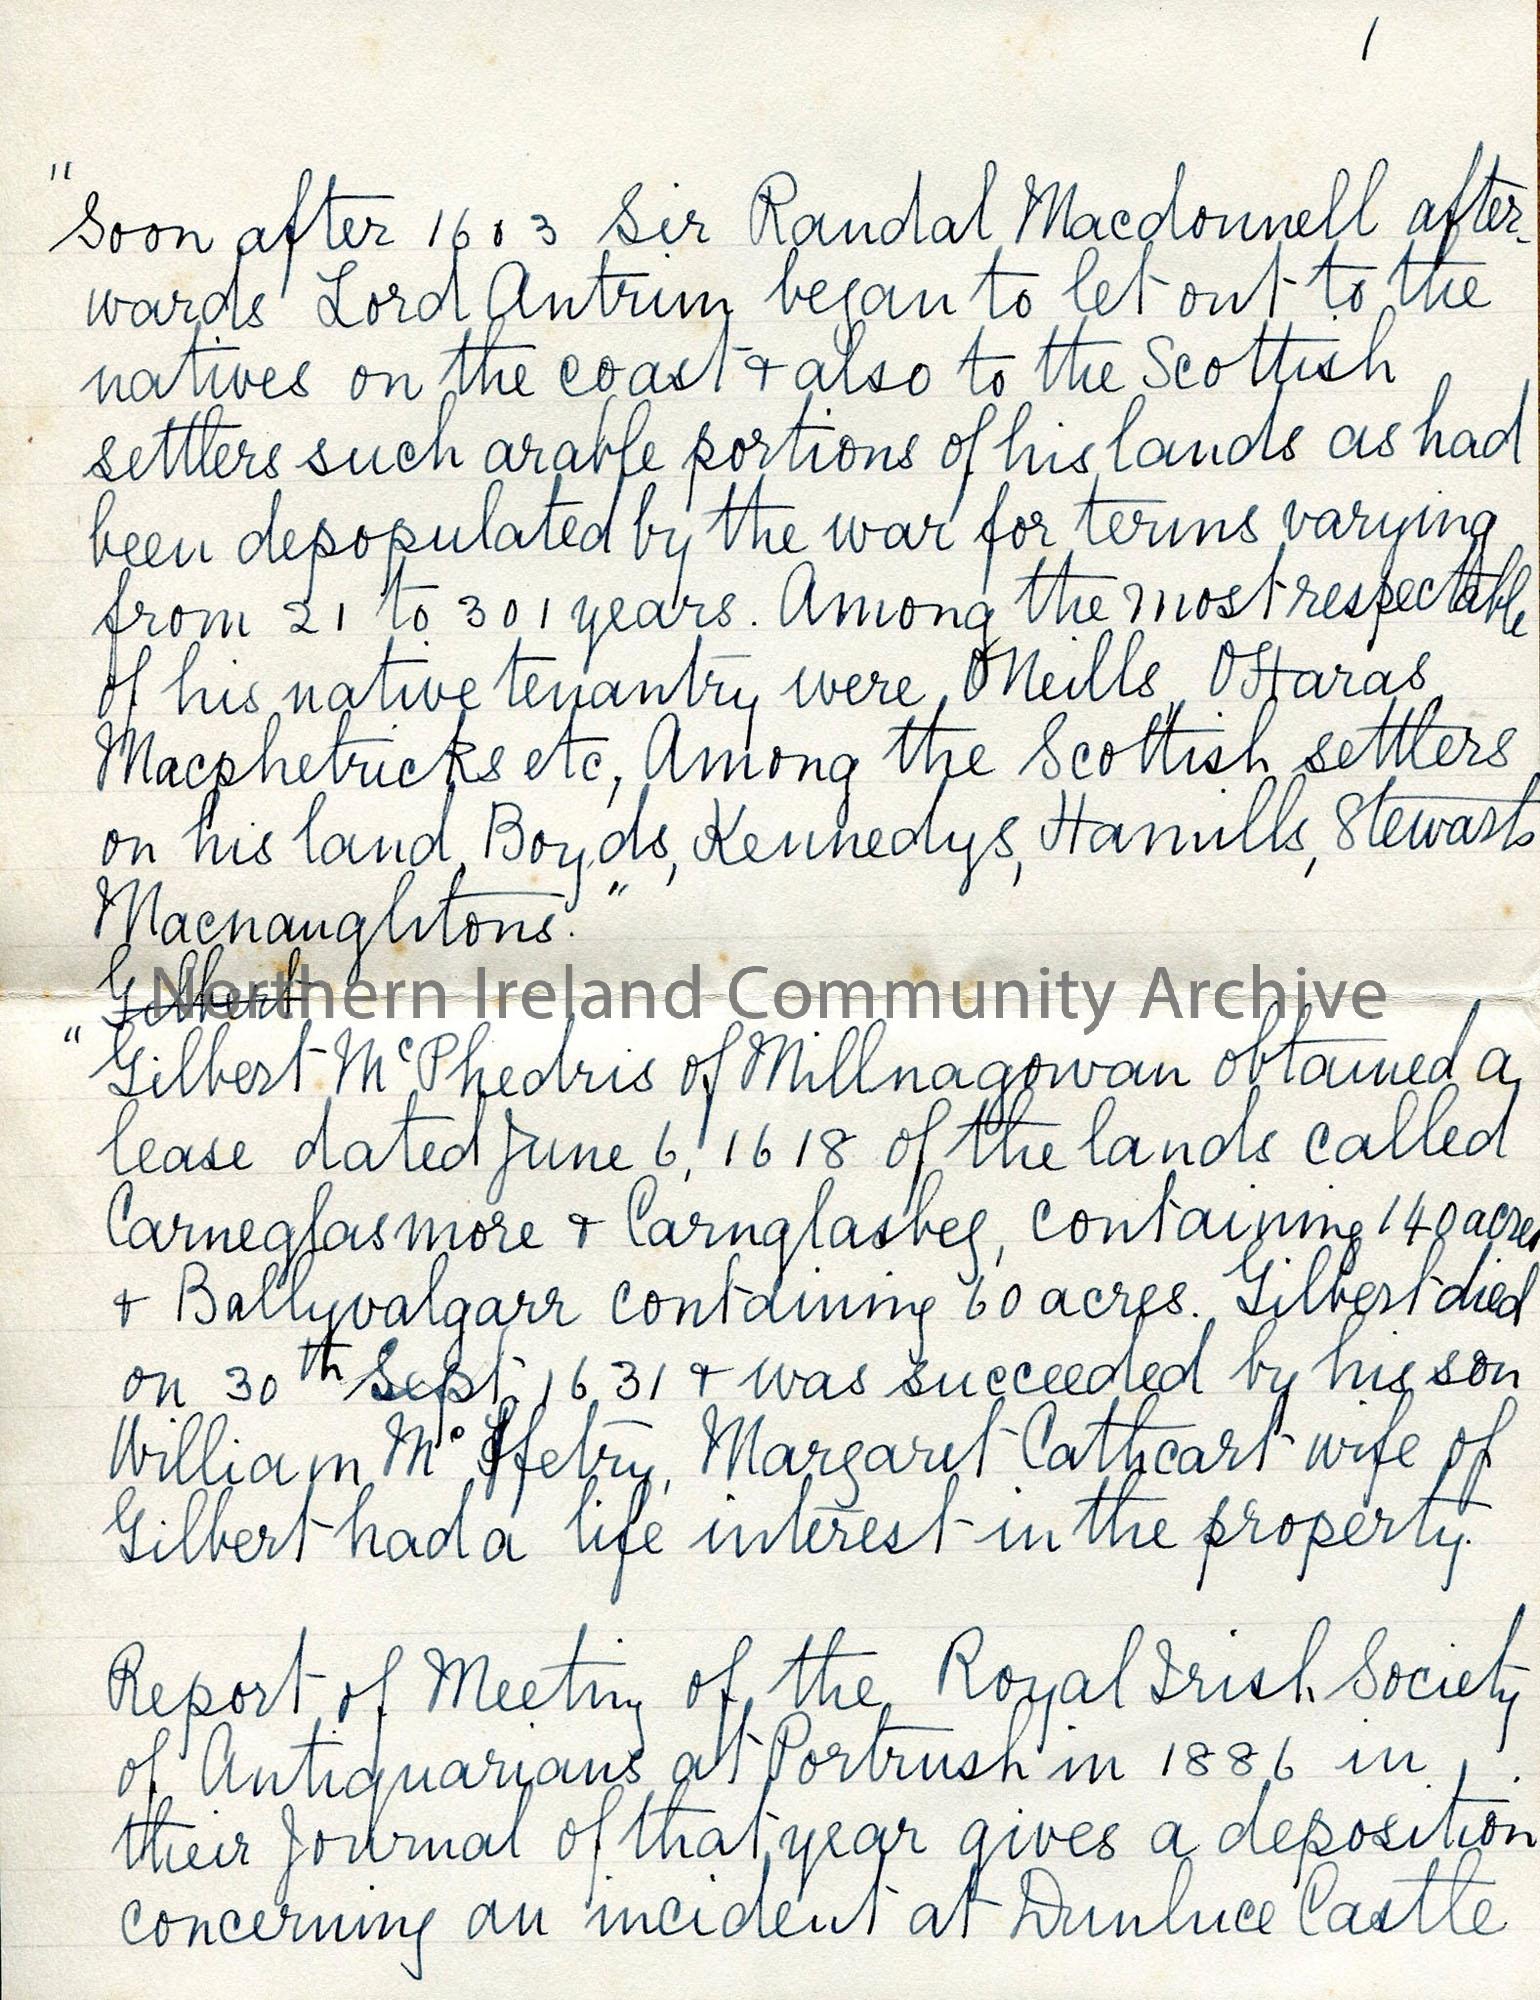 1
"Soon after 1603 Sir Randal Macdonnell after-
wards Lord Antrim began to let out to the
natives on the coast + also to the Scottish
settlers such arable portions of his lands as had
been depopulated by the war for terms varying
from 21 to 301 years. Among the most respectable
of his native tenantry were O'Neills, O'Haras
Macphetricks etc, Among the Scottish settlers
on his land, Boyds, Kennedys, Hamills, Stewarts
Macnaughtons."
Gilbert
Northern Ireland Community Archive
"Gilbert McPhedris of Millnagowan obtained a
lease dated June 6, 1618 of the lands called
Carneglasmore + Carnglasbeg, containing 140 acres
+ Ballyvalgarr containing 60 acres. Gilbert died
on 30th Sept, 1631 + was succeeded by his son
William Mc ffetry, Margaret Cathcart wife of
Gilbert had a life interest in the property.
Report of Meeting of the Royal Irish Society
of Antiquarians at Portrush in 1886 in
their Journal of that year gives a deposition
concerning an incident at Dunluce Castle